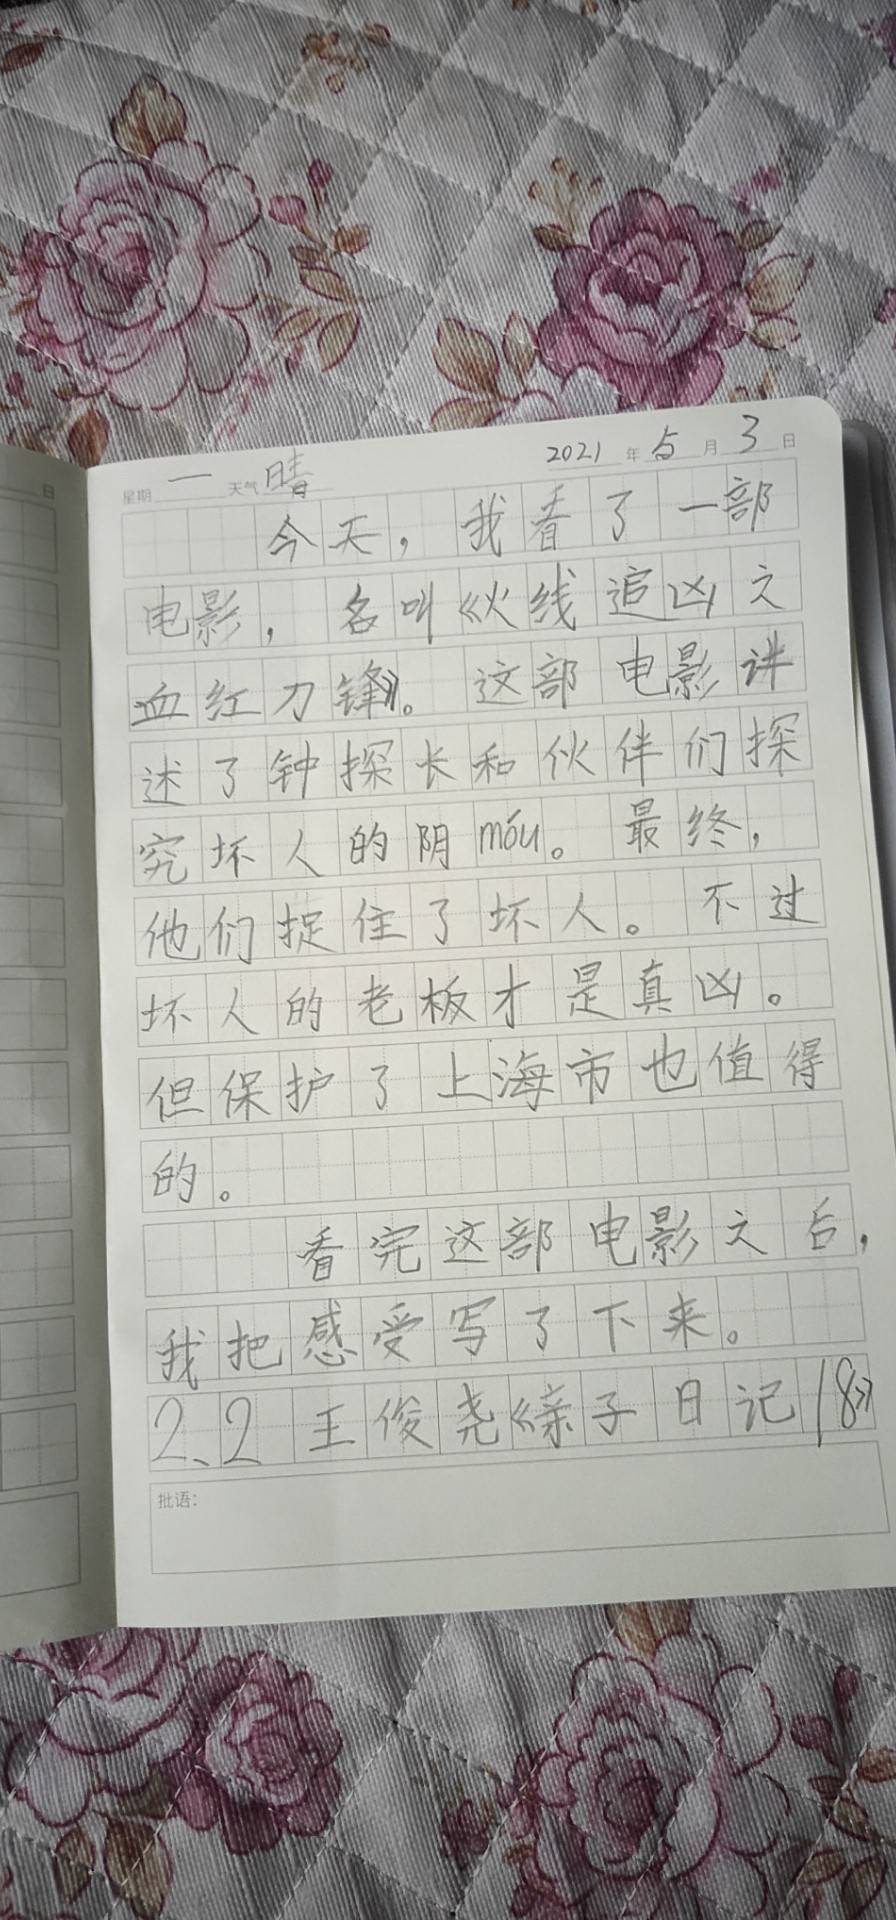 日
星期 一 天气 晴 2021 年 5 月 3 日
今天，我看了一部
电影，名叫《火线追凶之
血红刀锋》。这部电影讲
述了钟探长和伙伴们探
究坏人的阴móu。最终，
他们捉住了坏人。不过
坏人的老板才是真凶。
但保护了上海市也值得
的。
看完这部电影之后，
我把感受写了下来。
2、2 王俊尧《亲子日记18》
批语：